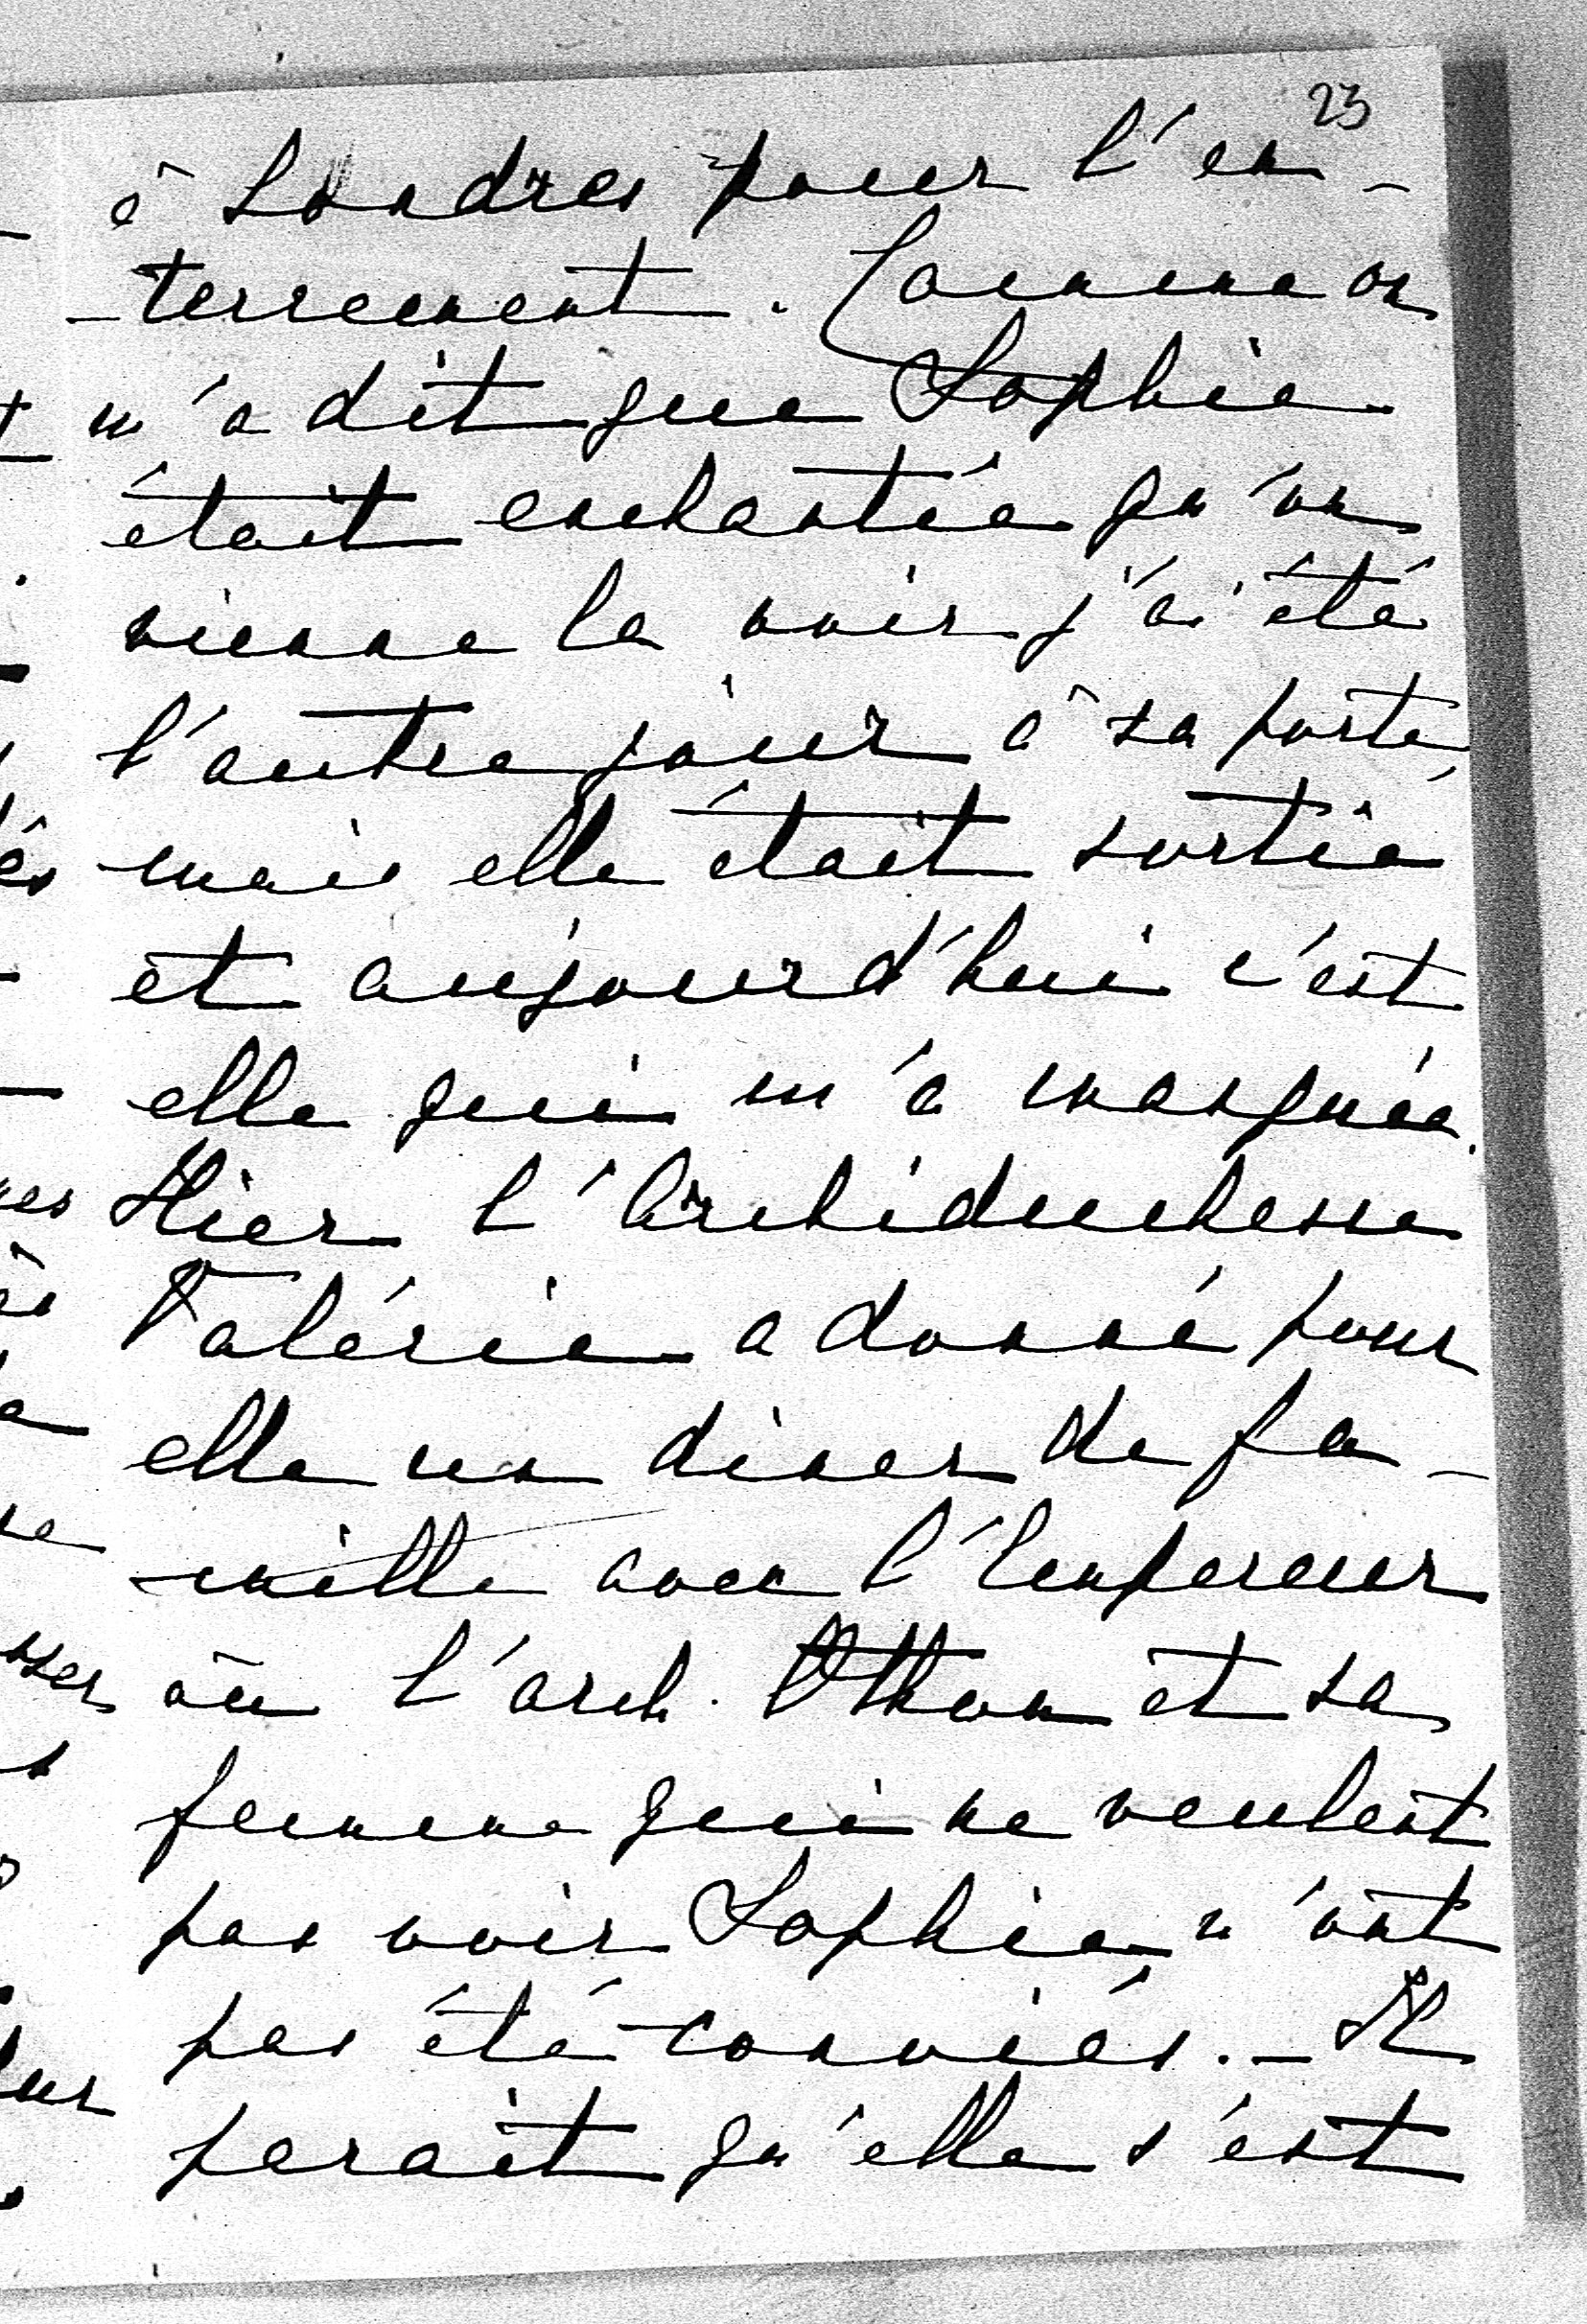 23
à Londres pour l'en-
-terrement. Comme on
m'a dit que Sophie
était enchantée qu'on
vienne la voir j'ai été
l'autre jour à sa porte,
mais elle était sortie
et aujourd'hui c'est
elle qui m'a manquée.
Hier l'Archiduchesse
Valérie a donné pour
elle un diner de fa-
-mille avec l'Empereur
où l'arch. Othon et sa
femme qui ne veulent
pas voir Sophie n'ont
pas été conviés. - Il
parait qu'elle s'est